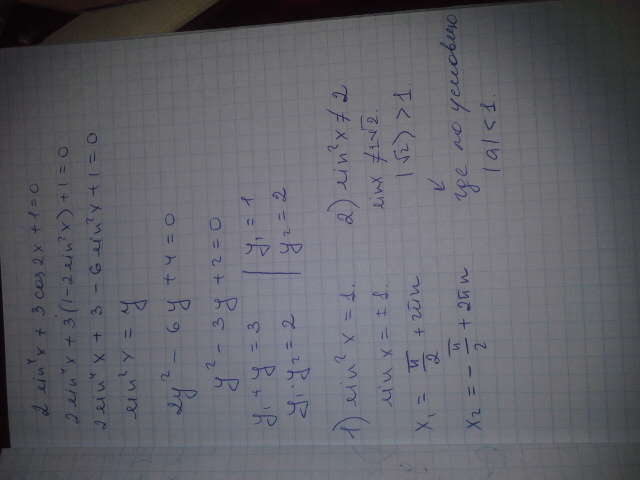 2 sin⁴x + 3 cos 2x + 1 = 0
2 sin⁴x + 3(1 - 2 sin²x) + 1 = 0
2 sin⁴x + 3 - 6 sin²x + 1 = 0
sin²x = y
2y² - 6y + 4 = 0
y² - 3y + 2 = 0
y₁ + y = 3
y₁ · y₂ = 2
y₁ = 1
y₂ = 2
1) sin²x = 1.
sin x = ±1.
x₁ = π/2 + 2πn
x₂ = -π/2 + 2πn
2) sin²x ≠ 2
sinx ≠ ±√2.
|√2| > 1
↙
где по условию
|a| < 1.